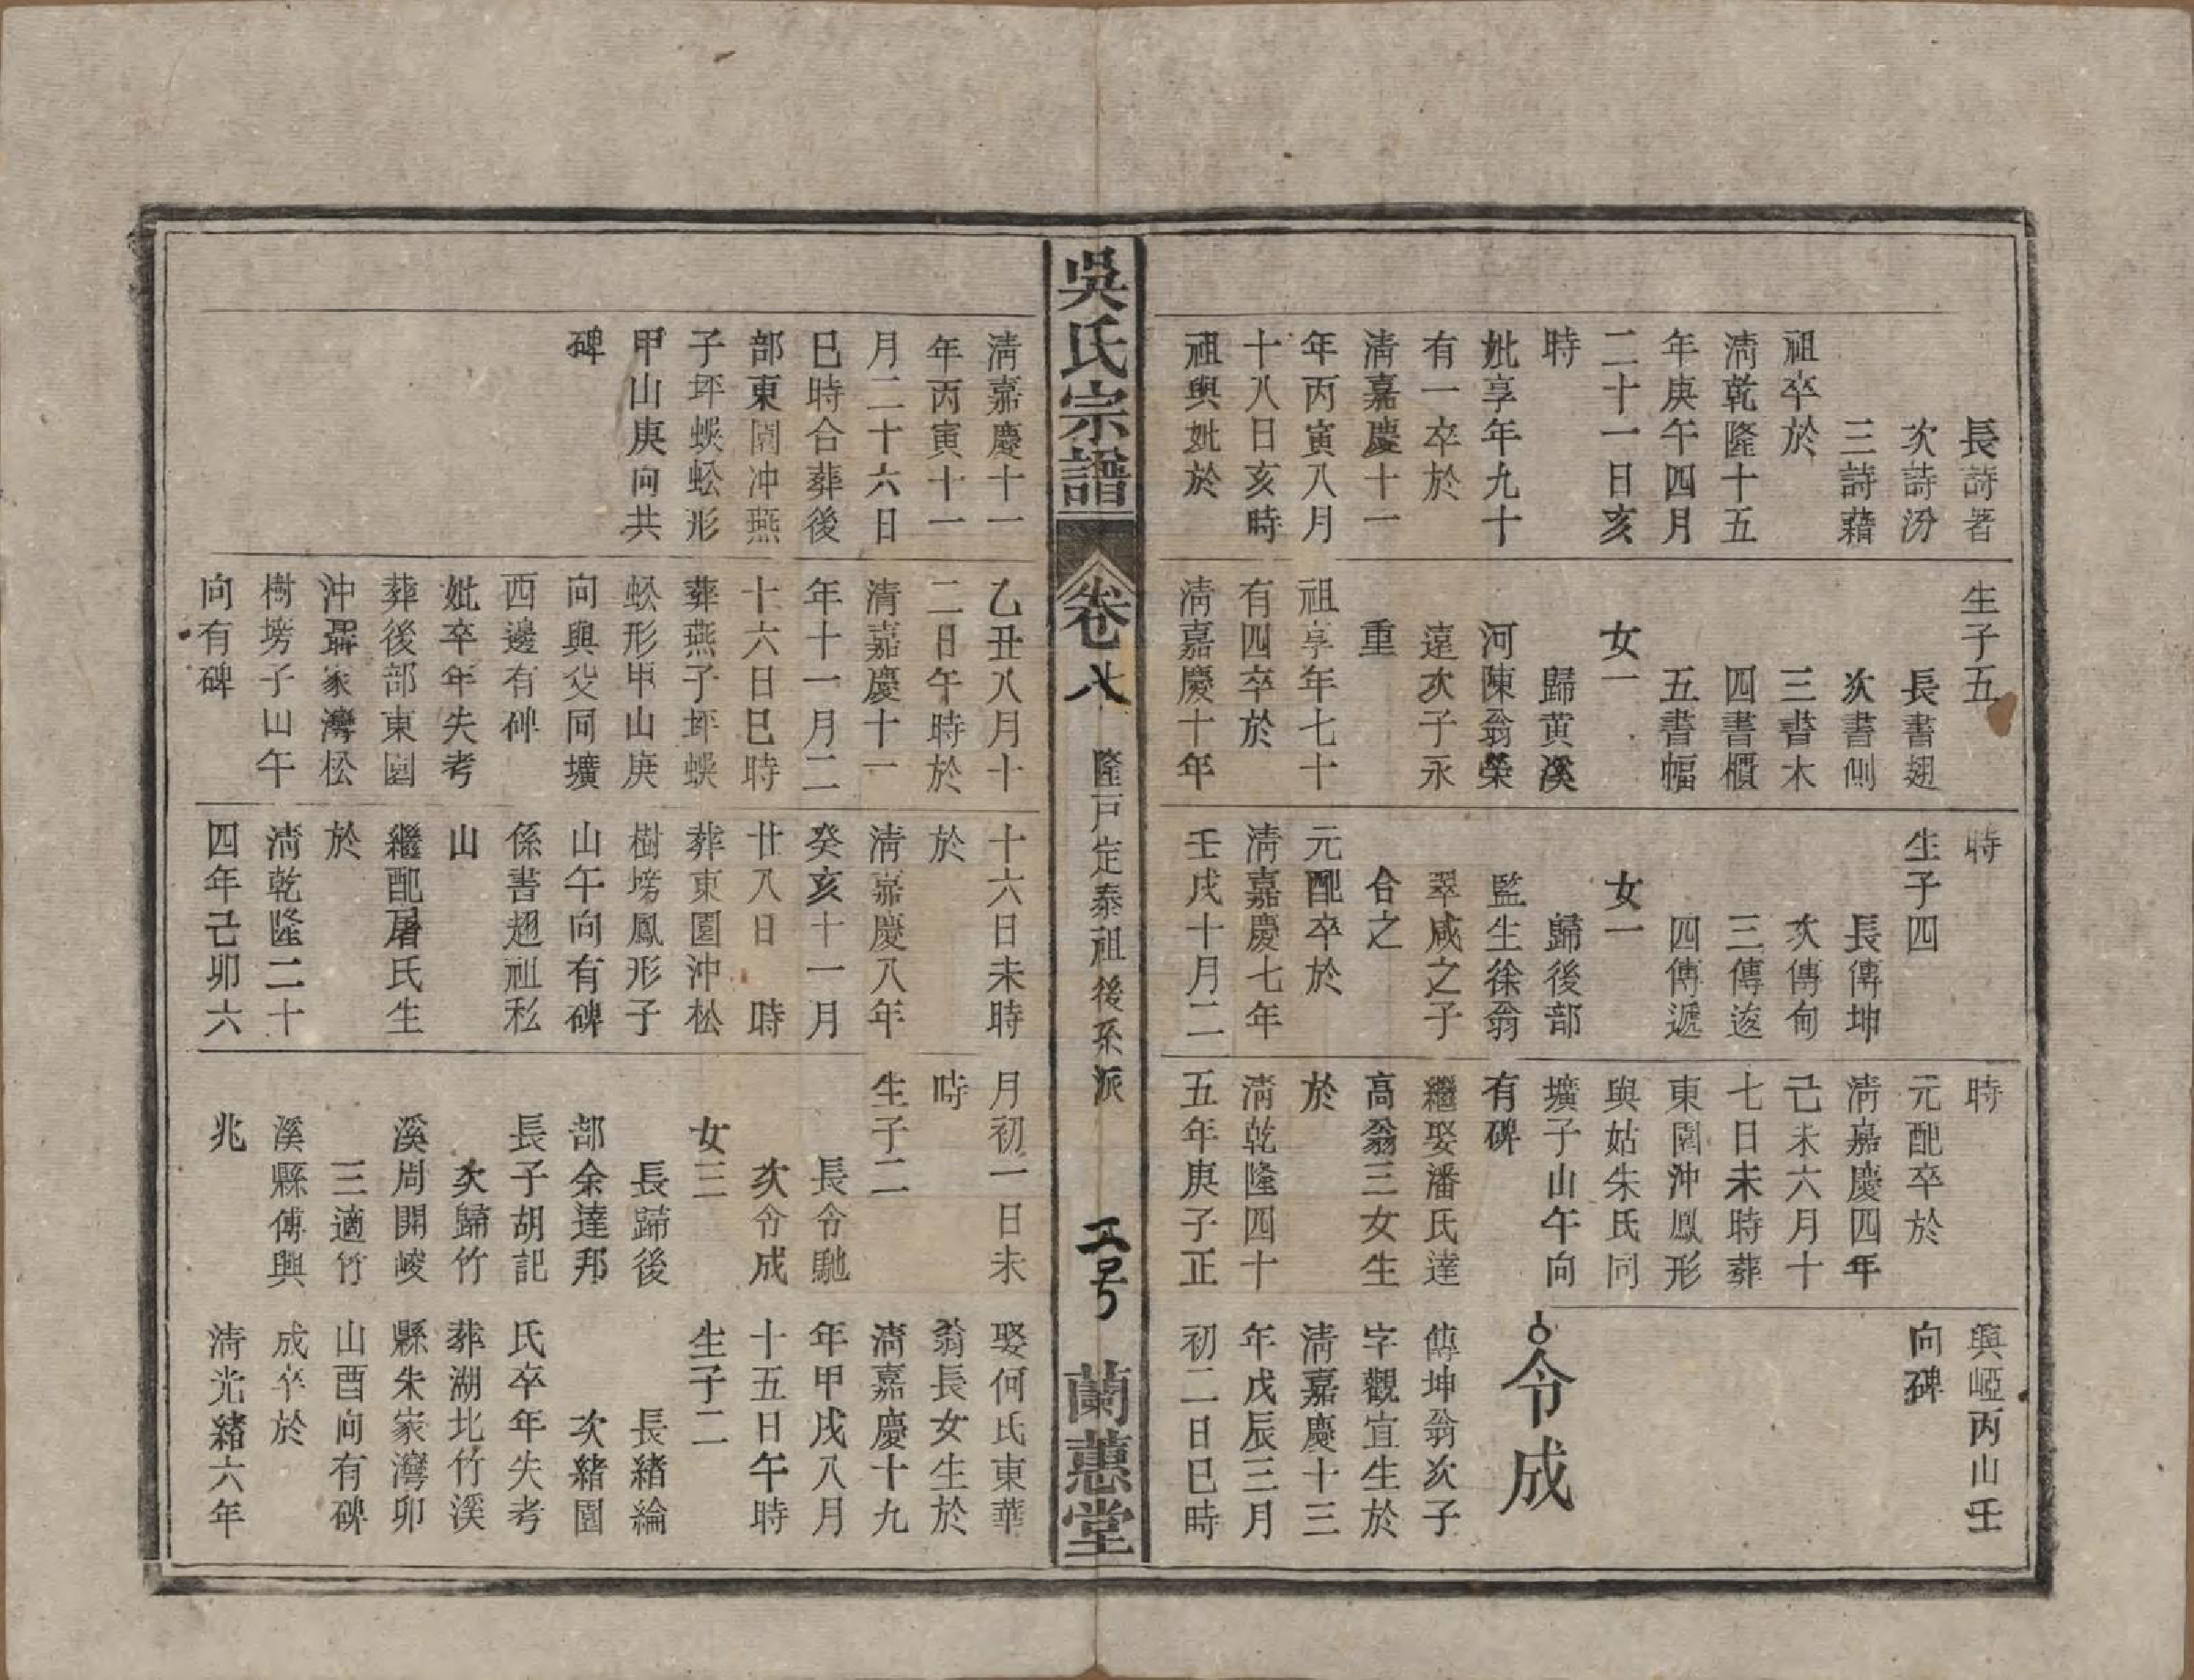 長詩著
次詩汾
三詩藉
祖卒於
淸乾隆十五
年庚午四月
二十一日亥
時
妣享年九十
有一卒於
淸嘉慶十一
年丙寅八月
十八日亥時
祖與妣於
生子五
長書翅
次書側
三書木
四書櫃
五書幅
女一
歸黄溪
河陳翁榮
遠次子永
重
祖享年七十
有四卒於
淸嘉慶十年
時
生子四
長傳坤
次傳甸
三傳
四傳遞
女一
歸後部
監生徐翁
翠咸之子
合之
元配卒於
淸嘉慶七年
壬戌十月二
時
元配卒於
淸嘉慶四年
己未六月十
七日未時葬
東園沖鳳形
與姑朱氏同
壙子山午向
有碑
繼娶潘氏達
高翁三女生
於
淸乾隆四十
五年庚子正
興峘丙山壬
向碑
令成
傳坤翁次子
字觀宜生於
淸嘉慶十三
年戊辰三月
初二日巳時
吳氏宗譜
卷八
隆戸定泰祖後系派
蘭蕙堂
淸嘉慶十一
年丙寅十一
月二十六日
巳時合葬後
部東園冲燕
子坪蜈蚣形
甲山庚向共
碑
乙丑八月十
二日午時於
清嘉慶十一
年十一月二
十六日巳時
葬燕子坪蜈
蚣形甲山庚
向與父同壙
西邊有碑
妣卒年失考
葬後部東園
沖聶家灣松
樹塝子山午
向有碑
十六日未時
於
淸嘉慶八年
癸亥十一月
廿八日　時
葬東園沖松
樹塝鳳形子
山午向有碑
係書翅祖私
山
繼配屠氏生
於
淸乾隆二十
四年己卯六
月初一日未
時
生子二
長令馳
次令成
女三
長歸後
部余達邦
長子胡記
次歸竹
溪周開峻
三適竹
溪縣傅興
兆
娶何氏東華
翁長女生於
淸嘉慶十九
年甲戌八月
十五日午時
生子二
長緒綸
次緒園
氏卒年失考
葬湖北竹溪
縣朱家灣卯
山酉向有碑
成卒於
淸光緒六年